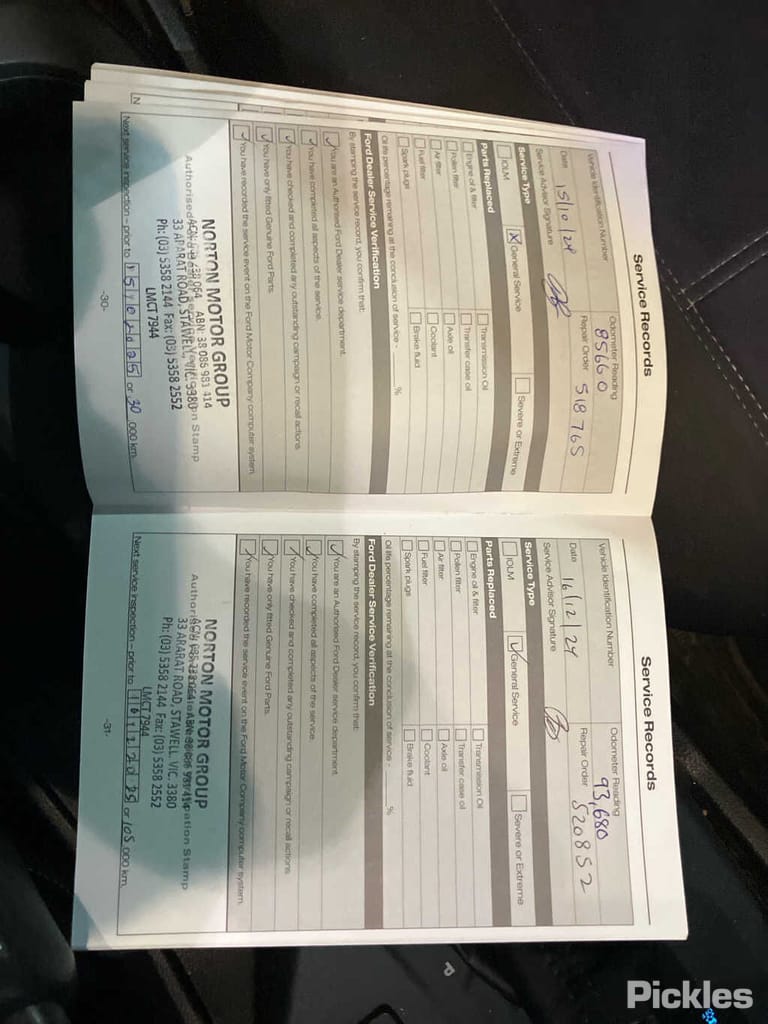 Service Records
Vehicle Identification Number
Odometer Reading
85660
Date 15/10/24
Repair Order 518765
Service Advisor Signature
Service Type
IOLM
X General Service
Severe or Extreme
Parts Replaced
Engine oil & filter
Transmission Oil
Pollen filter
Transfer case oil
Air filter
Axle oil
Fuel filter
Coolant
Spark plugs
Brake fluid
Oil life percentage remaining at the conclusion of service - %
Ford Dealer Service Verification
By stamping the service record, you confirm that:
You are an Authorised Ford Dealer service department.
You have completed all aspects of the service.
You have checked and completed any outstanding campaign or recall actions.
You have only fitted Genuine Ford Parts.
You have recorded the service event on the Ford Motor Company computer system.
NORTON MOTOR GROUP
ABN: 38 086 983 414
33 ARARAT ROAD, STAWELL, VIC. 3380
Ph: (03) 5358 2144 Fax: (03) 5358 2552
LMCT 7944
Next service inspection – prior to or 000 km.
-30-
Service Records
Vehicle Identification Number
Odometer Reading
93,680
Date 16/12/24
Repair Order 520852
Service Advisor Signature
Service Type
IOLM
General Service
Severe or Extreme
Parts Replaced
Engine oil & filter
Transmission Oil
Pollen filter
Transfer case oil
Air filter
Axle oil
Fuel filter
Coolant
Spark plugs
Brake fluid
Oil life percentage remaining at the conclusion of service - %
Ford Dealer Service Verification
By stamping the service record, you confirm that:
You are an Authorised Ford Dealer service department.
You have completed all aspects of the service.
You have checked and completed any outstanding campaign or recall actions.
You have only fitted Genuine Ford Parts.
You have recorded the service event on the Ford Motor Company computer system.
NORTON MOTOR GROUP
33 ARARAT ROAD, STAWELL, VIC. 3380
Ph: (03) 5358 2144 Fax: (03) 5358 2552
LMCT 7944
Next service inspection – prior to 16122025 or 105 000 km.
-31-
Pickles